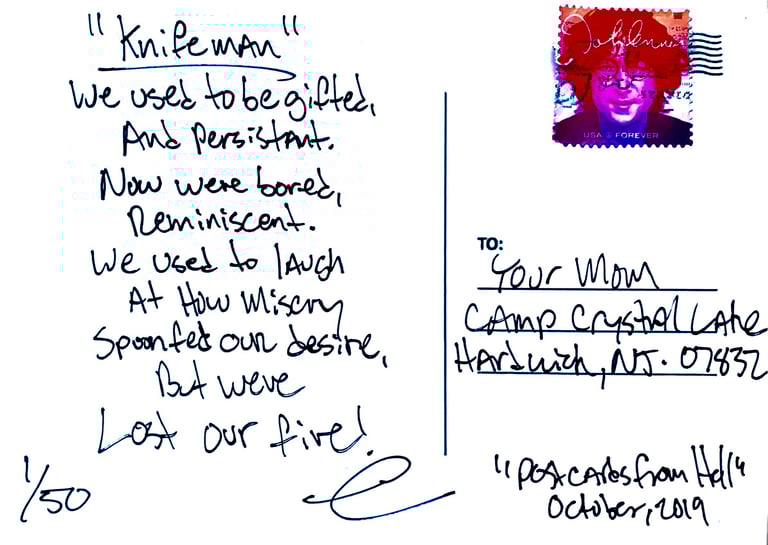 "Knifeman"
We used to be gifted,
And Persistant.
Now were bored,
Reminiscent.
We used to laugh
At How Misery
Spoonfed our desire,
But weve
Lost our fire!
1/50
John Lennon
USA FOREVER
TO:
Your Mom
Camp Crystal Lake
Hardwick, NJ. 07832
"Postcards from Hell"
October, 2019